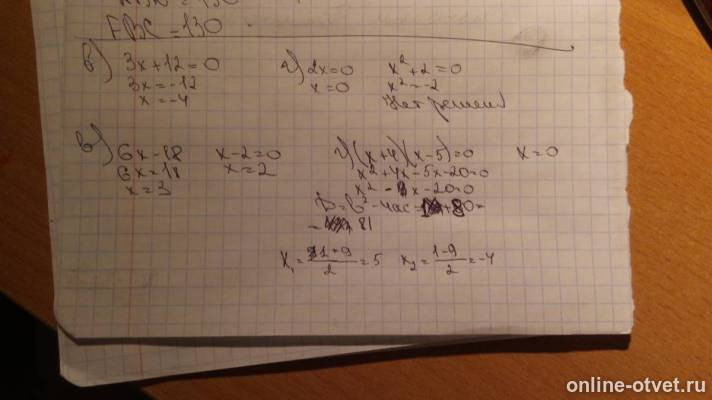 FBC = 130
б) 3x + 12 = 0
3x = -12
x = -4
г) 2x = 0
x = 0
x² + 2 = 0
x² = -2
Нет решений
в) 6x - 18
6x = 18
x = 3
x - 2 = 0
x = 2
г) (x+4)(x-5) = 0
x² + 4x - 5x - 20 = 0
x² - x - 20 = 0
D = b² - 4ac = + 80 =
= 81
x₁ = (1+9)/2 = 5
x₂ = (1-9)/2 = -4
x = 0
online-otvet.ru